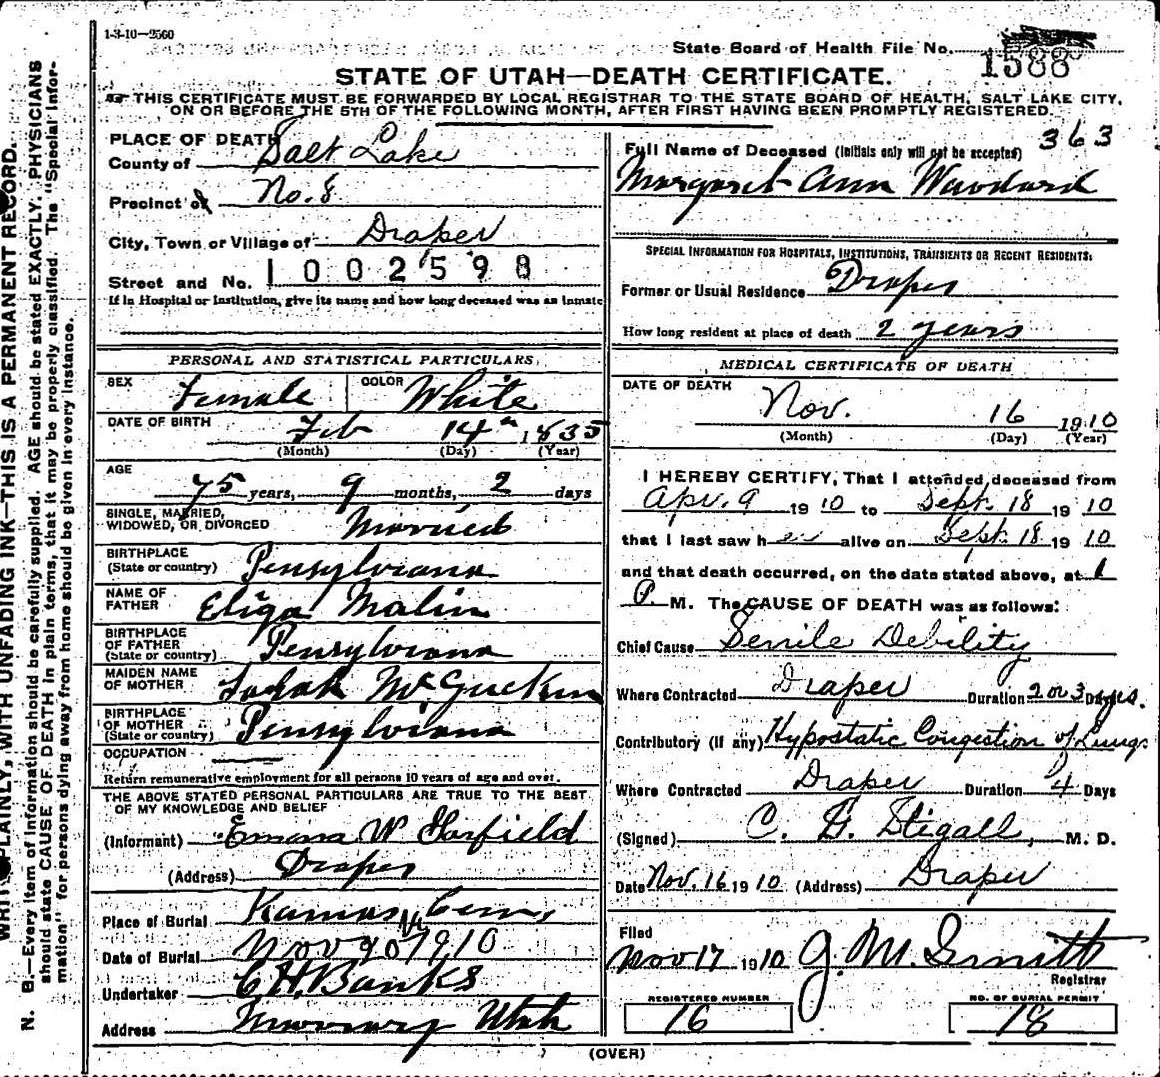 1-3-10—2560
State Board of Health File No. 1588
STATE OF UTAH—DEATH CERTIFICATE.
THIS CERTIFICATE MUST BE FORWARDED BY LOCAL REGISTRAR TO THE STATE BOARD OF HEALTH, SALT LAKE CITY,
ON OR BEFORE THE 5TH OF THE FOLLOWING MONTH, AFTER FIRST HAVING BEEN PROMPTLY REGISTERED.
PLACE OF DEATH
County of Salt Lake
Precinct of No. 8
City, Town or Village of Draper
Street and No. 1002598
If in Hospital or Institution, give its name and how long deceased was an inmate
PERSONAL AND STATISTICAL PARTICULARS
SEX Female COLOR White
DATE OF BIRTH Feb 14th 1835
(Month) (Day) (Year)
AGE
75 years, 9 months, 2 days
SINGLE, MARRIED,
WIDOWED, OR DIVORCED Married
BIRTHPLACE
(State or country) Pensylviana
NAME OF
FATHER Eliga Malin
BIRTHPLACE
OF FATHER
(State or country) Pensylviana
MAIDEN NAME
OF MOTHER
BIRTHPLACE
OF MOTHER
(State or country) Pensylviana
OCCUPATION
Return remunerative employment for all persons 10 years of age and over.
THE ABOVE STATED PERSONAL PARTICULARS ARE TRUE TO THE BEST
OF MY KNOWLEDGE AND BELIEF
(Informant) Emma W Garfield
(Address) Draper
Place of Burial Kamas Cem
Date of Burial Nov 20 1910
Undertaker C H Banks
Address Murray Utah
363
Full Name of Deceased (Initials only will not be accepted)
Margaret Ann Woodard
SPECIAL INFORMATION FOR HOSPITALS, INSTITUTIONS, TRANSIENTS OR RECENT RESIDENTS:
Former or Usual Residence Draper
How long resident at place of death 2 years
MEDICAL CERTIFICATE OF DEATH
DATE OF DEATH
Nov. 16 1910
(Month) (Day) (Year)
I HEREBY CERTIFY, That I attended deceased from
Apr. 9 1910 to Sept. 18 1910
that I last saw her alive on Sept. 18 1910
and that death occurred, on the date stated above, at 1
P. M. The CAUSE OF DEATH was as follows:
Chief Cause Senile Debility
Where Contracted Draper Duration 2 or 3 Days yrs.
Contributory (if any) Hypostatic Congestion of Lungs
Where Contracted Draper Duration 4 Days
(Signed) C. Stigall, M. D.
Date Nov. 16 1910 (Address) Draper
Filed
Nov 17 1910 J. M. Smith
Registrar
REGISTERED NUMBER
16
NO. OF BURIAL PERMIT
18
(OVER)
WRITE PLAINLY, WITH UNFADING INK—THIS IS A PERMANENT RECORD.
N. B.—Every item of information should be carefully supplied. AGE should be stated EXACTLY. PHYSICIANS
should state CAUSE OF DEATH in plain terms, that it may be properly classified. The "Special Infor-
mation" for persons dying away from home should be given in every instance.